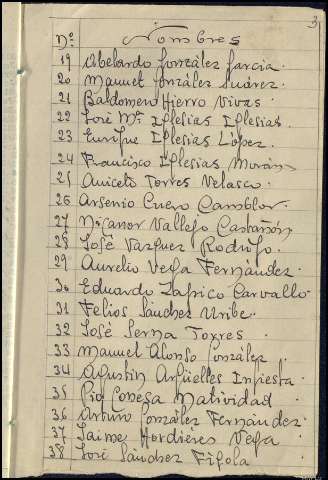 3
Nº Nombres
19 Abelardo González García.
20 Manuel González Suárez.
21 Baldomero Hierro Vivas.
22 José Mª Iglesias Iglesias.
23 Enrique Iglesias López.
24 Francisco Iglesias Morán
25 Aniceto Torres Velasco.
26 Arsenio Cuero Camblor.
27 Nicanor Vallejo Castañón
28 José Vázquez Rodrígo.
29 Aurelio Vega Fernández.
30 Eduardo Zapico Carvallo.
31 Sánchez Uribe.
32 José Serna Torres.
33 Manuel Alonso González.
34 Agustín Argüelles Iniesta.
35 Pío Conesa Natividad
36 Arturo González Fernández.
37 Jaime Hordières Vega
38 José Sánchez